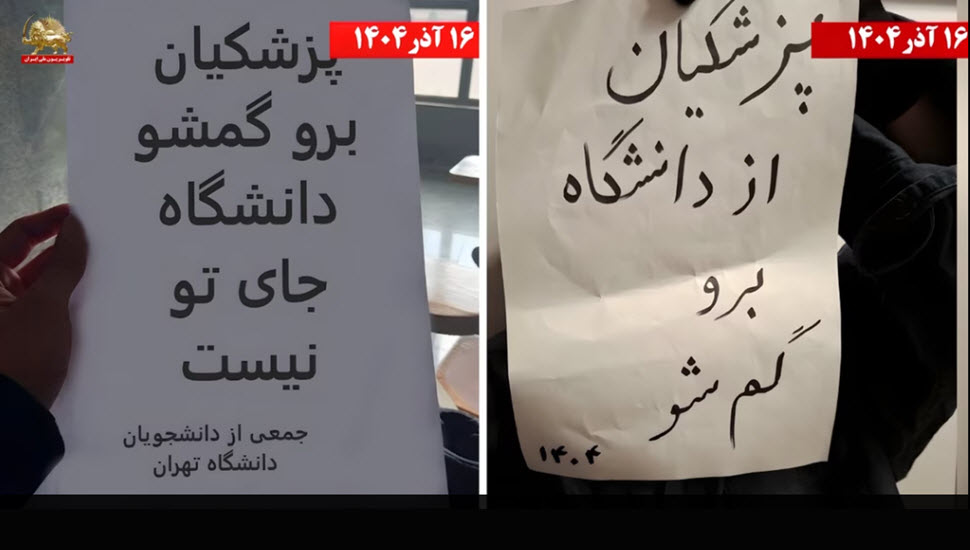 ۱۶ آذر ۱۴۰۴
پزشکیان
از دانشگاه
برو
گم شو
۱۴۰۴
سیمای آزادی
تلویزیون ملی ایران
۱۶ آذر ۱۴۰۴
پزشکیان
برو گمشو
دانشگاه
جای تو
نیست
جمعی از دانشجویان
دانشگاه تهران